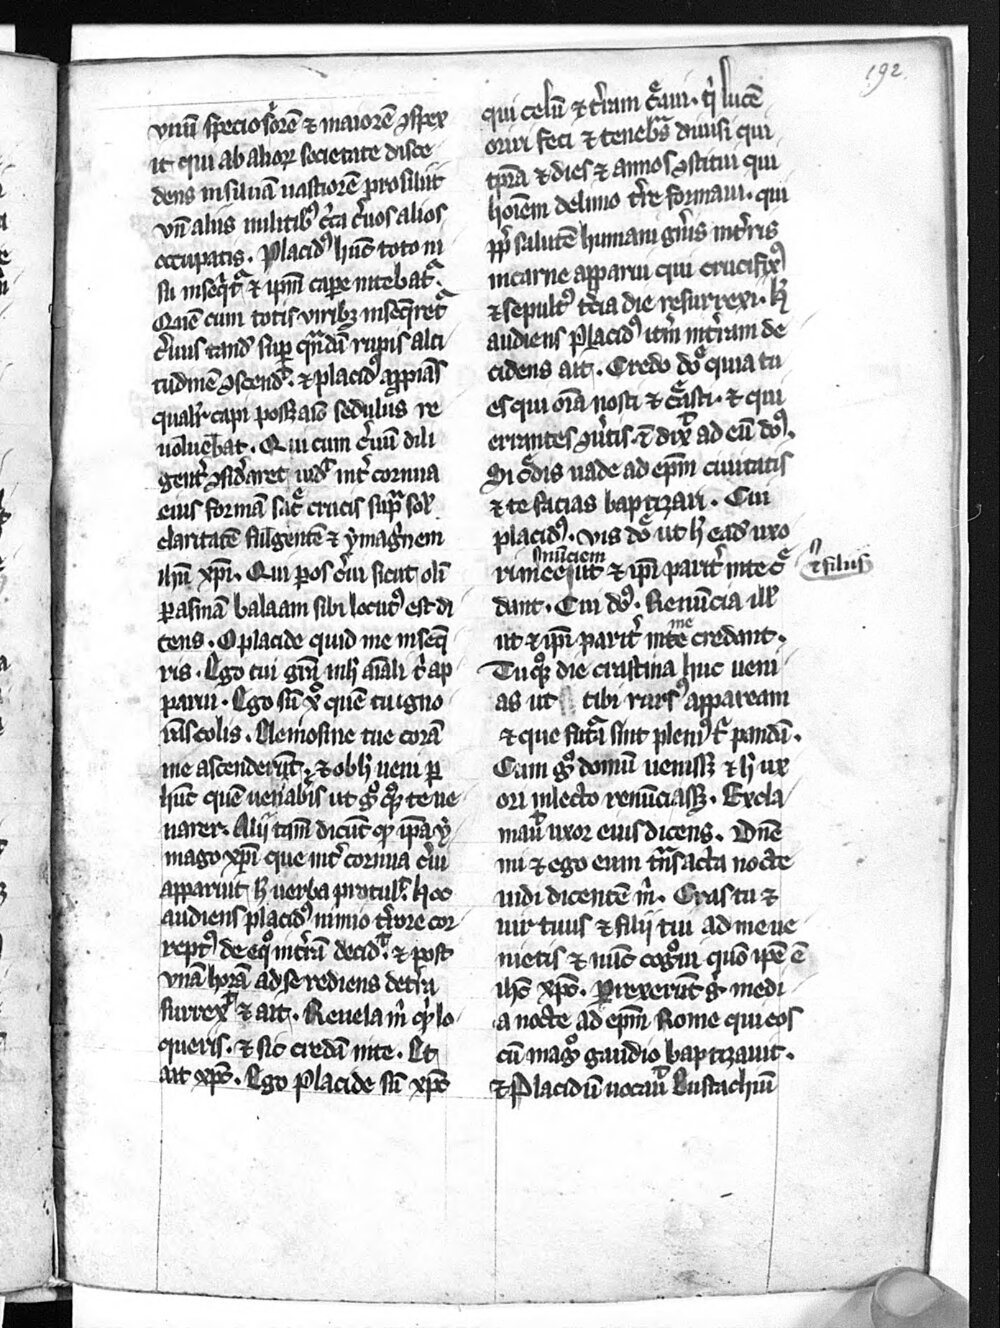 192
vnū speciosiorē ⁊ maiorē ꝯspex
it qui ab alioꝝ societate disce
dens in siluā uastiorē prosiluit
vn̄ aliis militibꝰ cͥca cͥuos alios
occupatis. Placidꝰ hūc toto ni
su inseqͥtᷓ ⁊ ip̄m cape intēbatᷓ.
Q̄re cum totis viribꝫ inseq̄retᷓ
cͥuus tandē sup qͣndā rupis alti
tudinē ꝯscendͭ. ⁊ placidꝰ app̄iās
qualiͭ capi possꝫ aīo sedulus re
uoluebat. Qui cum cͥuū dili
gentͥ ꝯsidͥaret uidͭ intͥ cornua
eius formā sāctē crucis supͣ sol'
claritatē fulgentē ⁊ ymagͥnem
ihū xp̄i. Qui ꝑ os cͥui sicut oli
ꝑ asinā balaam sibi locutꝰ est di
cens. O placide quid me inseq̄
ris. Ego tui gr̄a in hͦ aīali tͥ ap
parui. Ego sū xp̄c quē tu igno
rās colis. Elemosine tue corā
me ascenderūt. ⁊ ob hͦ ueni ꝑ
hūc quē uenabͥis ut gͦ qͦꝫ te ve
narer. Alij tam̄ dicūt qͥ ip̄a y
mago xp̄i que intͥ cornua cͥui
apparuit hͦ uerba protulͭ. Hoc
audiens placidꝰ nimio tͥrore cor
reptꝰ de eqͦ intͥrā decidͭ. ⁊ post
vnā horā ad se rediens de tͥra
surrexͭ ⁊ ait. Reuela m̄ qͥ lo
queris. ⁊ sic credā in te. Et
ait xp̄c. Ego placide sū xp̄c
qui celū ⁊ tͥram cͤaui. qͥ lucē
oriri feci ⁊ tenebͣs diuisi qui
tp̄ra ⁊ dies ⁊ annos ꝯstitui qui
hoīem de limo tͥre formaui. qui
ꝓpͭ salutē humani gn̄is in tͥris
in carne apparui qui crucifixꝰ
⁊ sepultꝰ tͥcia die resurrexi. hͦ
audiens Placidꝰ itͫ in tͥram de
cidens ait. Credo dn̄e quia tu
es qui oīa nosti ⁊ cͤasti. ⁊ qui
errantes ꝯuͥtis. ⁊ dixͭ ad eū dn̄s.
Si cͤdis uade ad epm̄ ciuitatis
⁊ te facias baptizari. Cui
placidꝰ. vis dn̄e ut hͦ eadē uxo
ri mee nūciem ut ⁊ ip̄i paritͥ in te cͤ
⁊ filiis
dant. Cui dn̄s. Renūcia ill'
ut ⁊ ip̄i paritͥ in me credant.
Tu qͦꝫ die crastina huc ueni
as ut tibi rursꝰ appaream
⁊ que futͣa sint pleniꝰ tͥ pandā.
Cum gͦ domū uenissꝫ ⁊ hͦ ux
ori in lecto renūciassꝫ. Excla
mauͭ uxor eius dicens. Dn̄e
mi ⁊ ego eum trāsacta nocte
uidi dicentē m̄. Cras tu ⁊
uir tuus ⁊ filij tui ad me ve
nietis ⁊ nūc cogͦui quō ip̄e ē
ihc xp̄c. Perrexerūt gͦ medi
a nocte ad epm̄ Rome qui eos
cū magͦ gaudio baptizauit.
⁊ Placidū uocauͭ Eustachiū